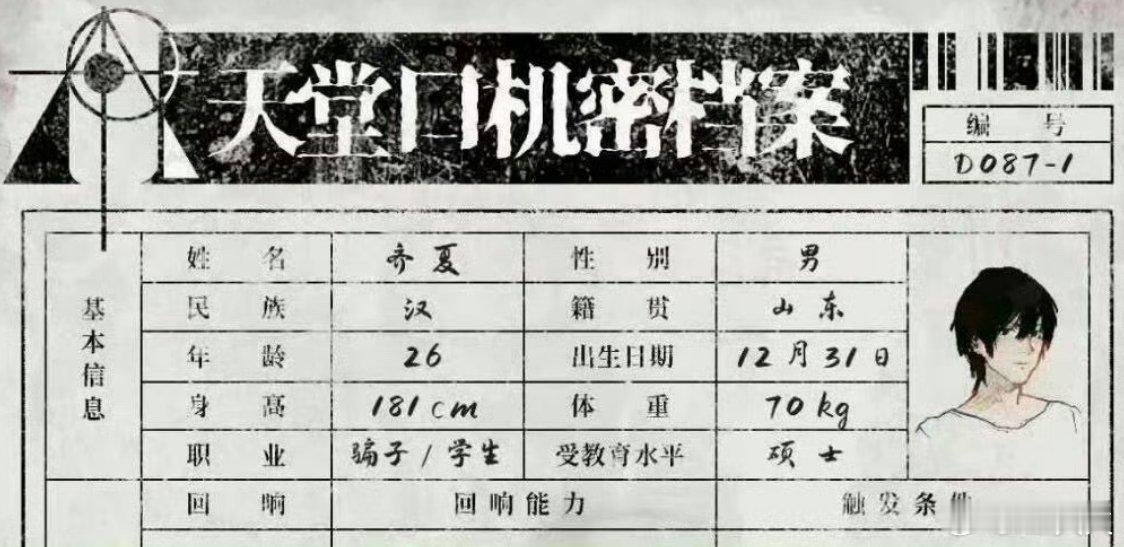 天堂口机密档案
编号
D087-1
基本信息
姓名 齐夏 性别 男
民族 汉 籍贯 山东
年龄 26 出生日期 12月31日
身高 181cm 体重 70kg
职业 骗子/学生 受教育水平 硕士
回响 回响能力 触发条件